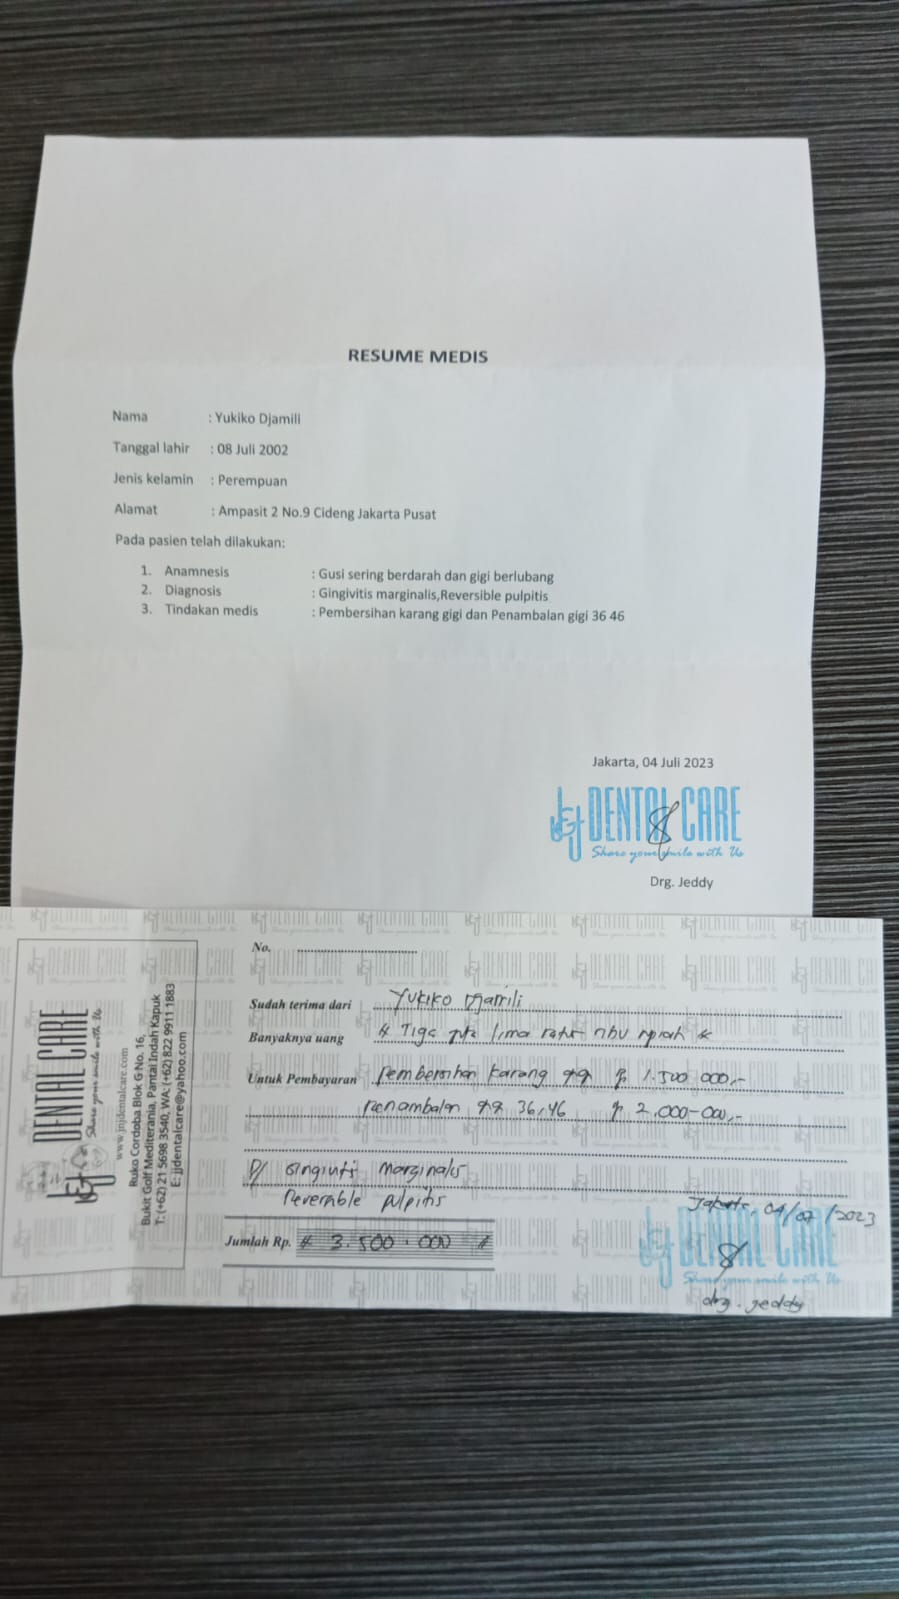 RESUME MEDIS
Nama : Yukiko Djamili
Tanggal lahir : 08 Juli 2002
Jenis kelamin : Perempuan
Alamat : Ampasit 2 No.9 Cideng Jakarta Pusat
Pada pasien telah dilakukan:
1. Anamnesis : Gusi sering berdarah dan gigi berlubang
2. Diagnosis : Gingivitis marginalis,Reversible pulpitis
3. Tindakan medis : Pembersihan karang gigi dan Penambalan gigi 36 46
Jakarta, 04 Juli 2023
J&J DENTAL CARE
Share your smile with Us
Drg. Jeddy
J&J DENTAL CARE
Share your smile with Us
www.jnjdentalcare.com
Ruko Cordoba Blok G No. 16,
Bukit Golf Mediterania, Pantai Indah Kapuk
T: (+62) 21 5698 3540, WA: (+62) 822 9911 1883
E: jjdentalcare@yahoo.com
No.
Sudah terima dari Yukiko Djamili
Banyaknya uang # Tiga juta lima ratus ribu rupiah #
Untuk Pembayaran Pembersihan karang gigi Rp 1.500.000,-
Penambalan gigi 36,46 Rp 2.000-000,-
D/ Gingivitis marginalis
Reversible pulpitis
Jakarta, 04/07/2023
Jumlah Rp. # 3.500.000 #
J&J DENTAL CARE
Share your smile with Us
drg. Jeddy